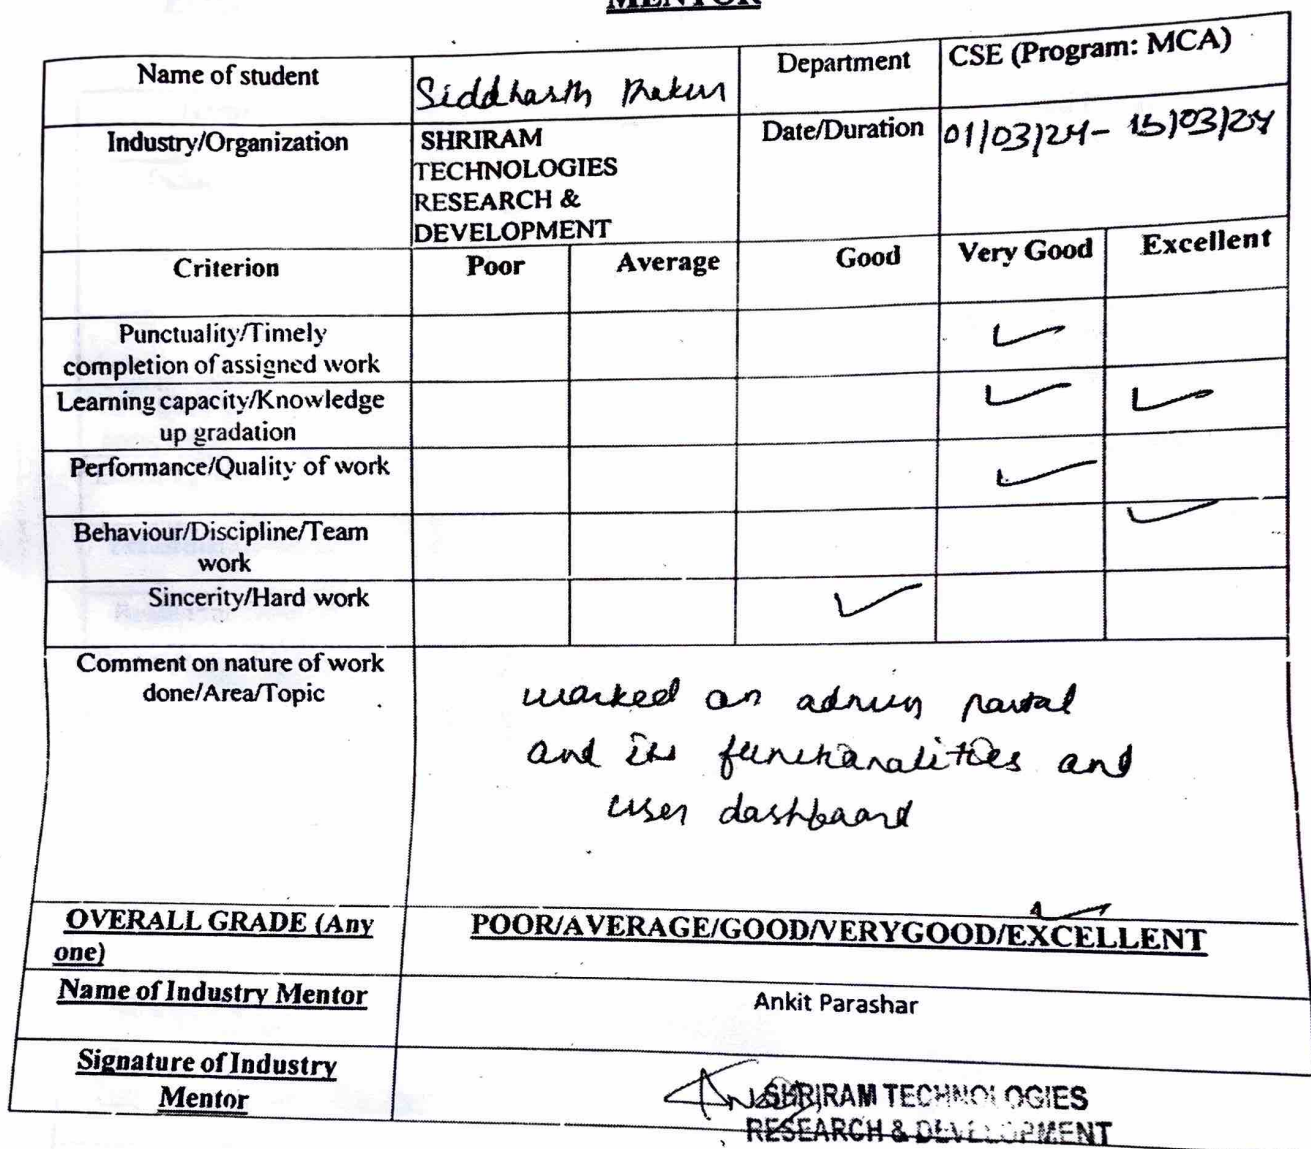 MENTOR
Name of student
Siddharth Thakur
Department
CSE (Program: MCA)
Industry/Organization
SHRIRAM
TECHNOLOGIES
RESEARCH &
DEVELOPMENT
Date/Duration
01/03/24- 15/03/24
Criterion Poor Average Good Very Good Excellent
Punctuality/Timely
completion of assigned work
Learning capacity/Knowledge
up gradation
Performance/Quality of work
Behaviour/Discipline/Team
work
Sincerity/Hard work
Comment on nature of work
done/Area/Topic
worked on admin portal
and its functionalities and
user dashboard
OVERALL GRADE (Any
one)
POOR/AVERAGE/GOOD/VERYGOOD/EXCELLENT
Name of Industry Mentor
Ankit Parashar
Signature of Industry
Mentor
SHRIRAM TECHNOLOGIES
RESEARCH & DEVELOPMENT